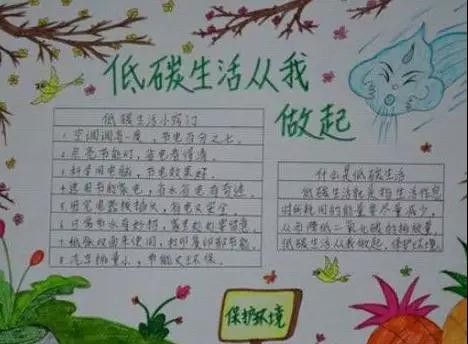 低碳生活从我
做起
低碳生活小窍门
1. 空调调高一度，节电百分之七。
2. 点亮节能灯，省电看得清。
3. 科学用电脑，节电效果好。
4. 选用节能家电，省水省电有奇迹。
5. 用完电器拔插头，省电又安全。
6. 日常节水有妙招，
7. 纸张双面来使用，
8. 汽车排量小，节能又环保。
什么是低碳生活
低碳生活就是指生活作息
时所耗用的能量要尽量减少，
从而降低二氧化碳的排放量。
低碳生活从我做起，保护环境。
保护环境